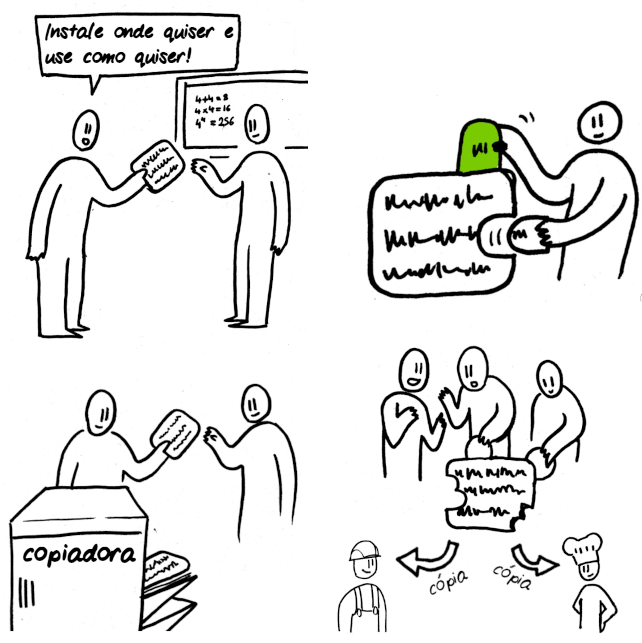 Instale onde quiser e
use como quiser!
4+4=8
4x4=16
4⁴=256
copiadora
cópia
cópia